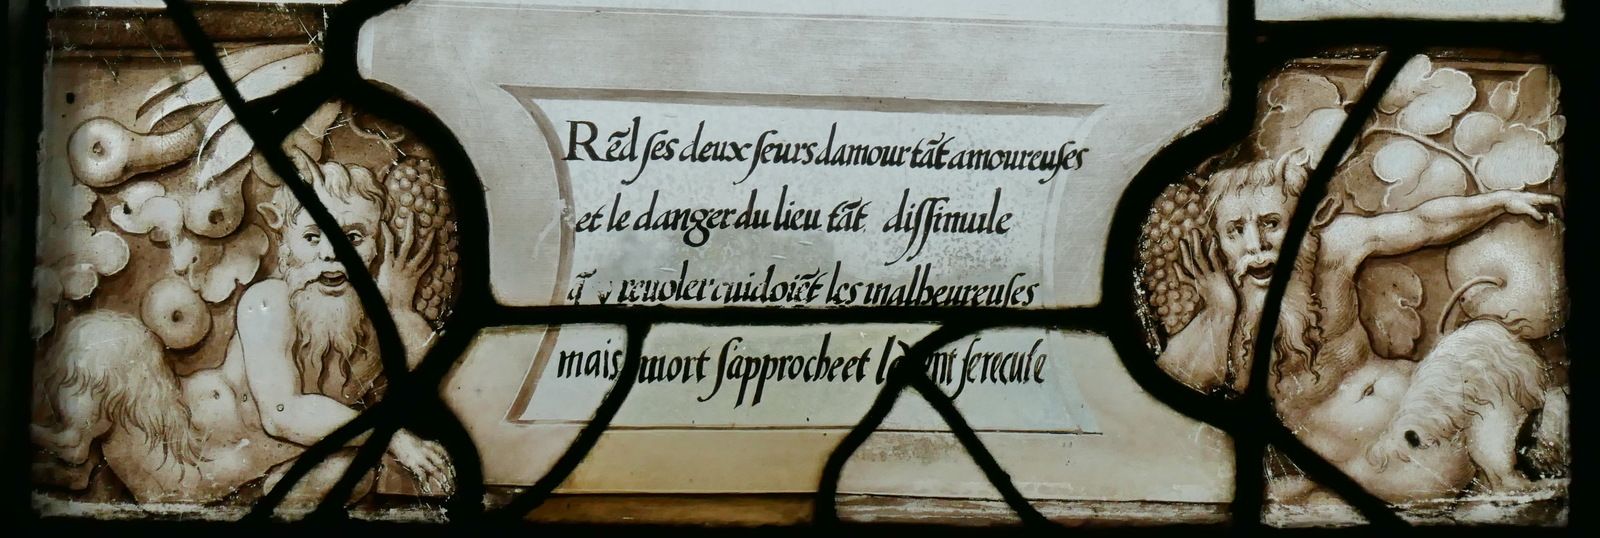 Rēd ses deux seurs damour tāt amoureuses
et le danger du lieu tāt dissimule
q̄ reuoler cuidoiēt les malheureuses
mais mort sapproche et se recule